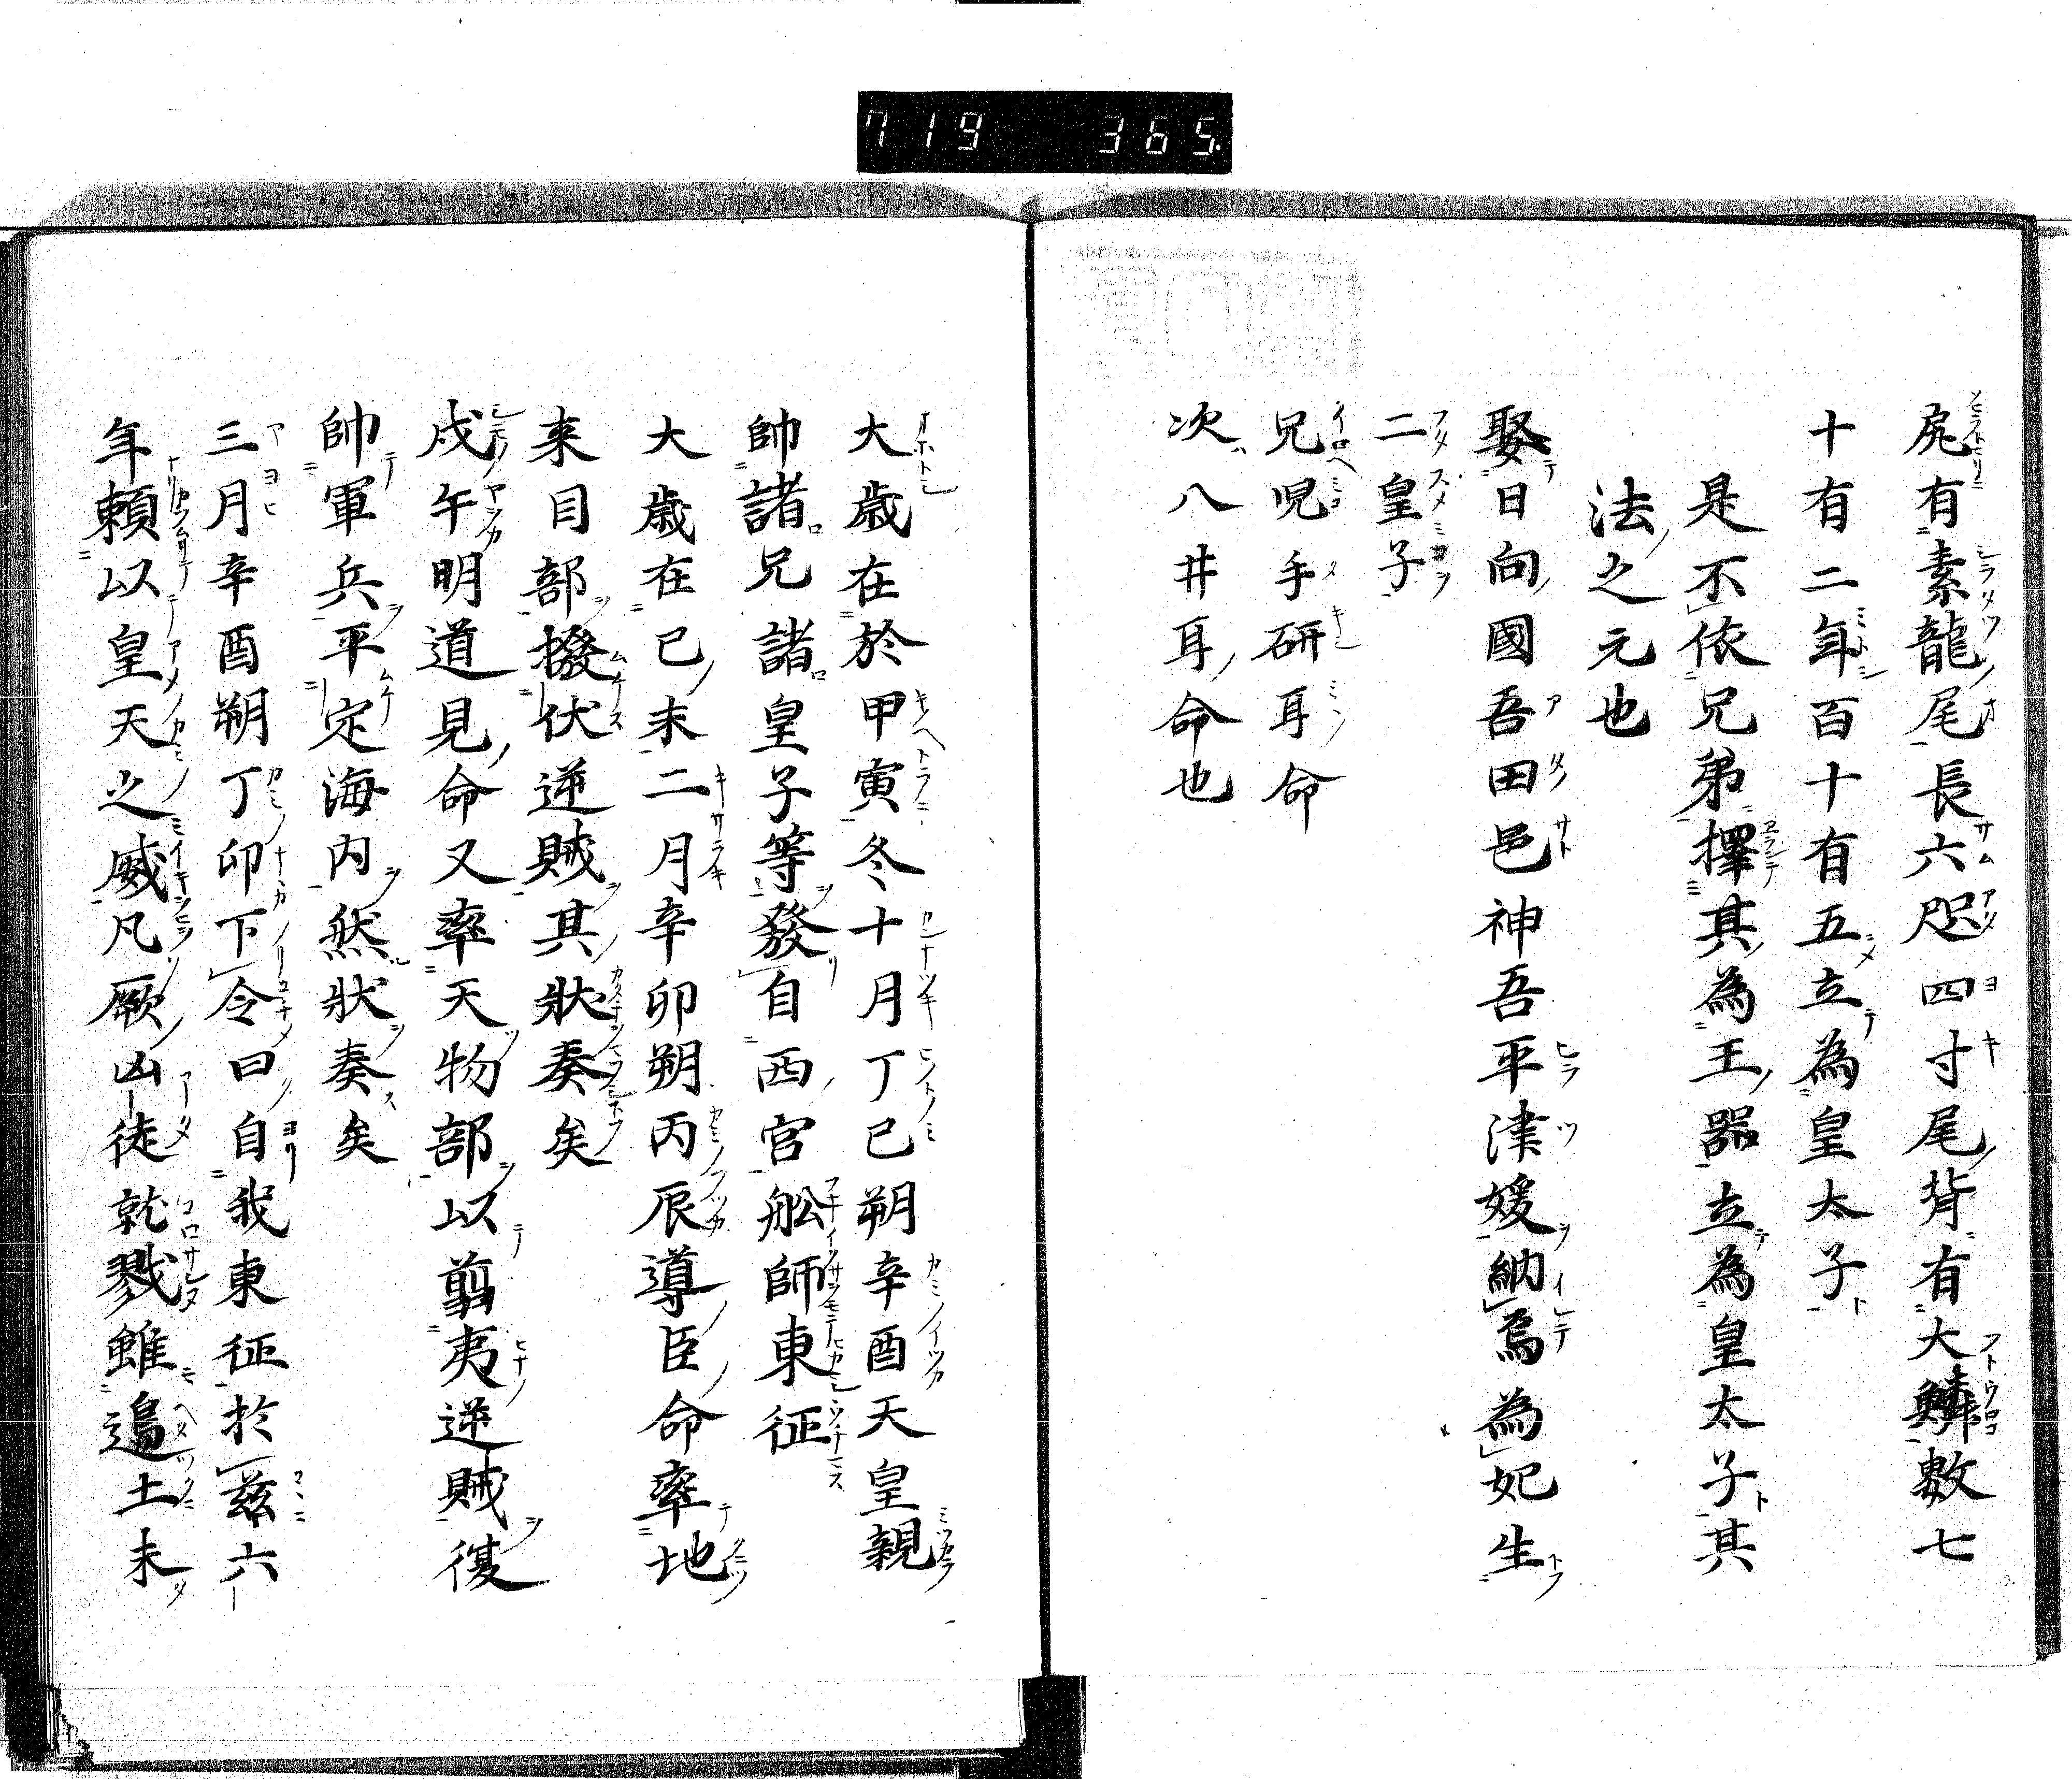 719 365
尻有素龍尾長六咫四寸尾背有大鱗數七
十有二年百十有五立為皇太子
是不依兄弟擇其為王器立為皇太子其
法之元也
娶日向國吾田邑神吾平津媛納為為妃生
二皇子
兄児手研耳命
次八井耳命也
大歳在於甲寅冬十月丁巳朔辛酉天皇親
帥諸兄諸皇子等發自西宮舩師東征
大歳在己未二月辛卯朔丙辰導臣命率地
来目部撥伏逆賊其狀奏矣
戍午明道見命又率天物部以翦夷逆賊復
帥軍兵平定海内然狀奏矣
三月辛酉朔丁卯下令曰自我東征於茲六
年頼以皇天之威凡厥凶徒就戮雖邊土未